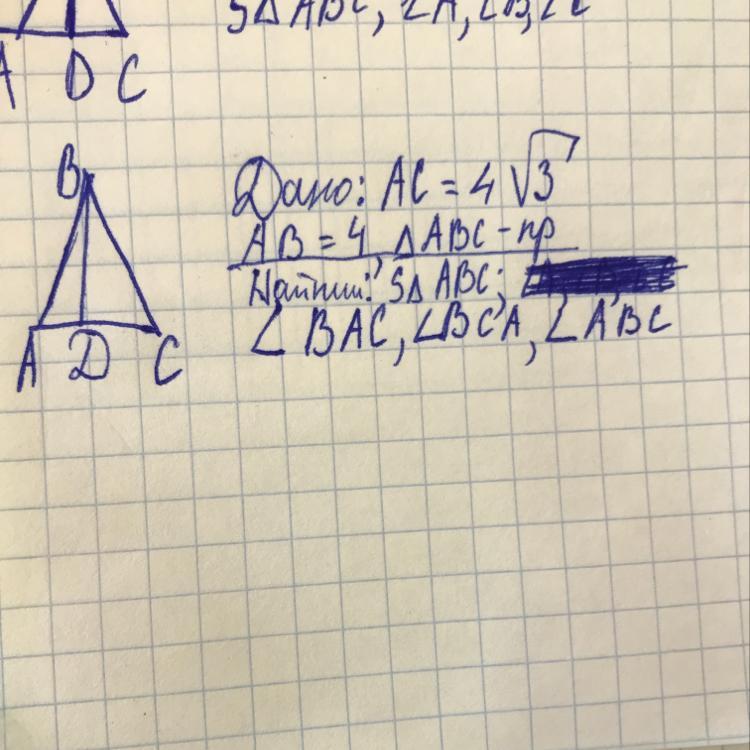 S△ABC, ∠A, ∠B, ∠C
A D C
B
Дано: AC = 4√3
AB = 4, △ABC - пр
Найти: S△ABC;
∠BAC, ∠BCA, ∠ABC
A D C